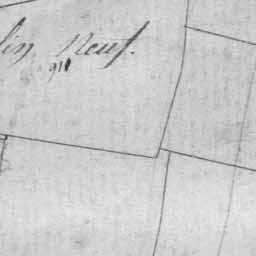 lin Neuf.
911